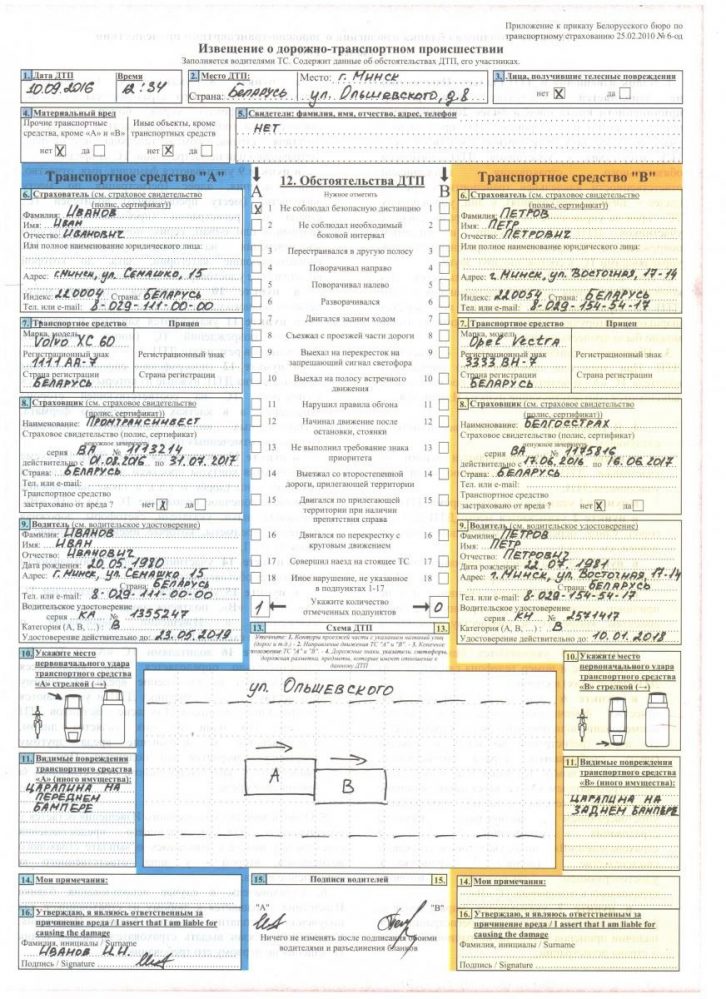 Приложение к приказу Белорусского бюро по
транспортному страхованию 25.02.2010 № 6-од
Извещение о дорожно-транспортном происшествии
Заполняется водителями ТС. Содержит данные об обстоятельствах ДТП, его участниках.
1. Дата ДТП Время
10.09.2016 12:34
2. Место ДТП: Место: г. Минск
Страна: Беларусь ул. Ольшевского, д.8
3. Лица, получившие телесные повреждения
нет X да
4. Материальный вред
Прочие транспортные средства, кроме «А» и «В»
Иные объекты, кроме транспортных средств
нет X да нет X да
5. Свидетели: фамилия, имя, отчество, адрес, телефон
НЕТ
Транспортное средство "А"
6. Страхователь (см. страховое свидетельство
(полис, сертификат))
Фамилия: Иванов
Имя: Иван
Отчество: Иванович
Или полное наименование юридического лица:
Адрес: г.Минск, ул. Семашко, 15
Индекс: 220004 Страна: Беларусь
Тел. или e-mail: 8-029-111-00-00
7. Транспортное средство Прицеп
Марка, модель
Volvo XC 60
Регистрационный знак Регистрационный знак
1111 АА-7
Страна регистрации Страна регистрации
Беларусь
8. Страховщик (см. страховое свидетельство
(полис, сертификат))
Наименование: Промтрансинвест
Страховое свидетельство (полис, сертификат)
ненужное зачеркнуть
серия ВА № 1113214
действительно с 01.08.2016 по 31.07.2017
Страна: Беларусь
Тел. или e-mail:
Транспортное средство
застраховано от вреда ? нет X да
9. Водитель (см. водительское удостоверение)
Фамилия: Иванов
Имя: Иван
Отчество: Иванович
Дата рождения: 20.05.1980
Адрес: г. Минск, ул. Семашко, 15
Страна: Беларусь
Тел. или e-mail: 8-029-111-00-00
Водительское удостоверение
серия КА № 1355247
Категория (А, В, ...) : В
Удостоверение действительно до: 23.05.2019
10. Укажите место
первоначального удара
транспортного средства
«А» стрелкой (→)
11. Видимые повреждения
транспортного средства
«А» (иного имущества):
Царапина на
переднем
бампере
14. Мои примечания:
16. Утверждаю, я являюсь ответственным за
причинение вреда / I assert that I am liable for
causing the damage
Фамилия, инициалы / Surname
Иванов И.И.
Подпись / Signature
А 12. Обстоятельства ДТП В
Нужное отметить
X 1 Не соблюдал безопасную дистанцию 1
2 Не соблюдал необходимый боковой интервал 2
3 Перестраивался в другую полосу 3
4 Поворачивал направо 4
5 Поворачивал налево 5
6 Разворачивался 6
7 Двигался задним ходом 7
8 Съезжал с проезжей части дороги 8
9 Выехал на перекресток на запрещающий сигнал светофора 9
10 Выехал на полосу встречного движения 10
11 Нарушил правила обгона 11
12 Начинал движение после остановки, стоянки 12
13 Не выполнил требование знака приоритета 13
14 Выезжал со второстепенной дороги, прилегающей территории 14
15 Двигался по прилегающей территории при наличии препятствия справа 15
16 Двигался по перекрестку с круговым движением 16
17 Совершил наезд на стоящее ТС 17
18 Иное нарушение, не указанное в подпунктах 1-17 18
1 Укажите количество отмеченных подпунктов 0
13. Схема ДТП 13.
Уточните: 1. Контуры проезжей части с указанием названий улиц
(дорог и т.д.) - 2. Направление движения ТС "А" и "В" - 3. Конечное
положение ТС "А" и "В" - 4. Дорожные знаки, указатели, светофоры,
дорожная разметка, предметы, которые имеют отношение к
данному ДТП
ул. Ольшевского
А
В
15. Подписи водителей 15.
"А" "В"
Ничего не изменять после подписания обоими
водителями и разъединения бланков
Транспортное средство "В"
6. Страхователь (см. страховое свидетельство
(полис, сертификат))
Фамилия: Петров
Имя: Петр
Отчество: Петрович
Или полное наименование юридического лица:
Адрес: г. Минск, ул. Восточная, 17-14
Индекс: 220054 Страна: Беларусь
Тел. или e-mail: 8-029-154-54-17
7. Транспортное средство Прицеп
Марка, модель
Opel Vectra
Регистрационный знак Регистрационный знак
3333 ВН-7
Страна регистрации Страна регистрации
Беларусь
8. Страховщик (см. страховое свидетельство
(полис, сертификат))
Наименование: Белгосстрах
Страховое свидетельство (полис, сертификат)
ненужное зачеркнуть
серия ВА № 1175816
действительно с 17.06.2016 по 16.06.2017
Страна: Беларусь
Тел. или e-mail:
Транспортное средство
застраховано от вреда ? нет X да
9. Водитель (см. водительское удостоверение)
Фамилия: Петров
Имя: Петр
Отчество: Петрович
Дата рождения: 22.07.1981
Адрес: г. Минск, ул. Восточная, 17-14
Страна: Беларусь
Тел. или e-mail: 8-029-154-54-17
Водительское удостоверение
серия КН № 2571417
Категория (А, В, ...) : В
Удостоверение действительно до: 10.01.2018
10. Укажите место
первоначального удара
транспортного средства
«В» стрелкой (→)
11. Видимые повреждения
транспортного средства
«В» (иного имущества):
Царапина на
заднем бампере
14. Мои примечания:
16. Утверждаю, я являюсь ответственным за
причинение вреда / I assert that I am liable for
causing the damage
Фамилия, инициалы / Surname
Подпись / Signature